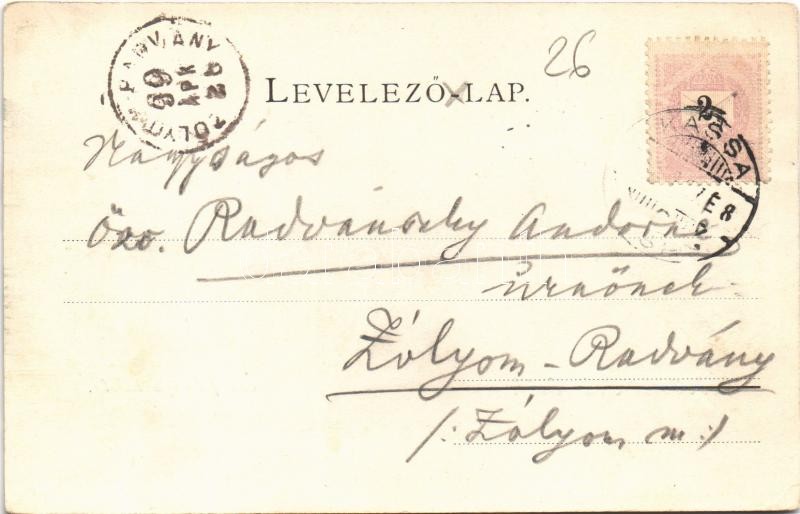 RADVÁNY
99
APR
26
ZÓLYOM
26
LEVELEZŐ-LAP.
2
KASSA
Nagyságos
Özv. Radvánszky Andorné
úrnőnek
Zólyom-Radvány
/: Zólyom m :/